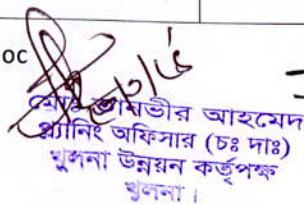 oc
মোঃ তানভীর আহমেদ
প্ল্যানিং অফিসার (চঃ দাঃ)
খুলনা উন্নয়ন কর্তৃপক্ষ
খুলনা।